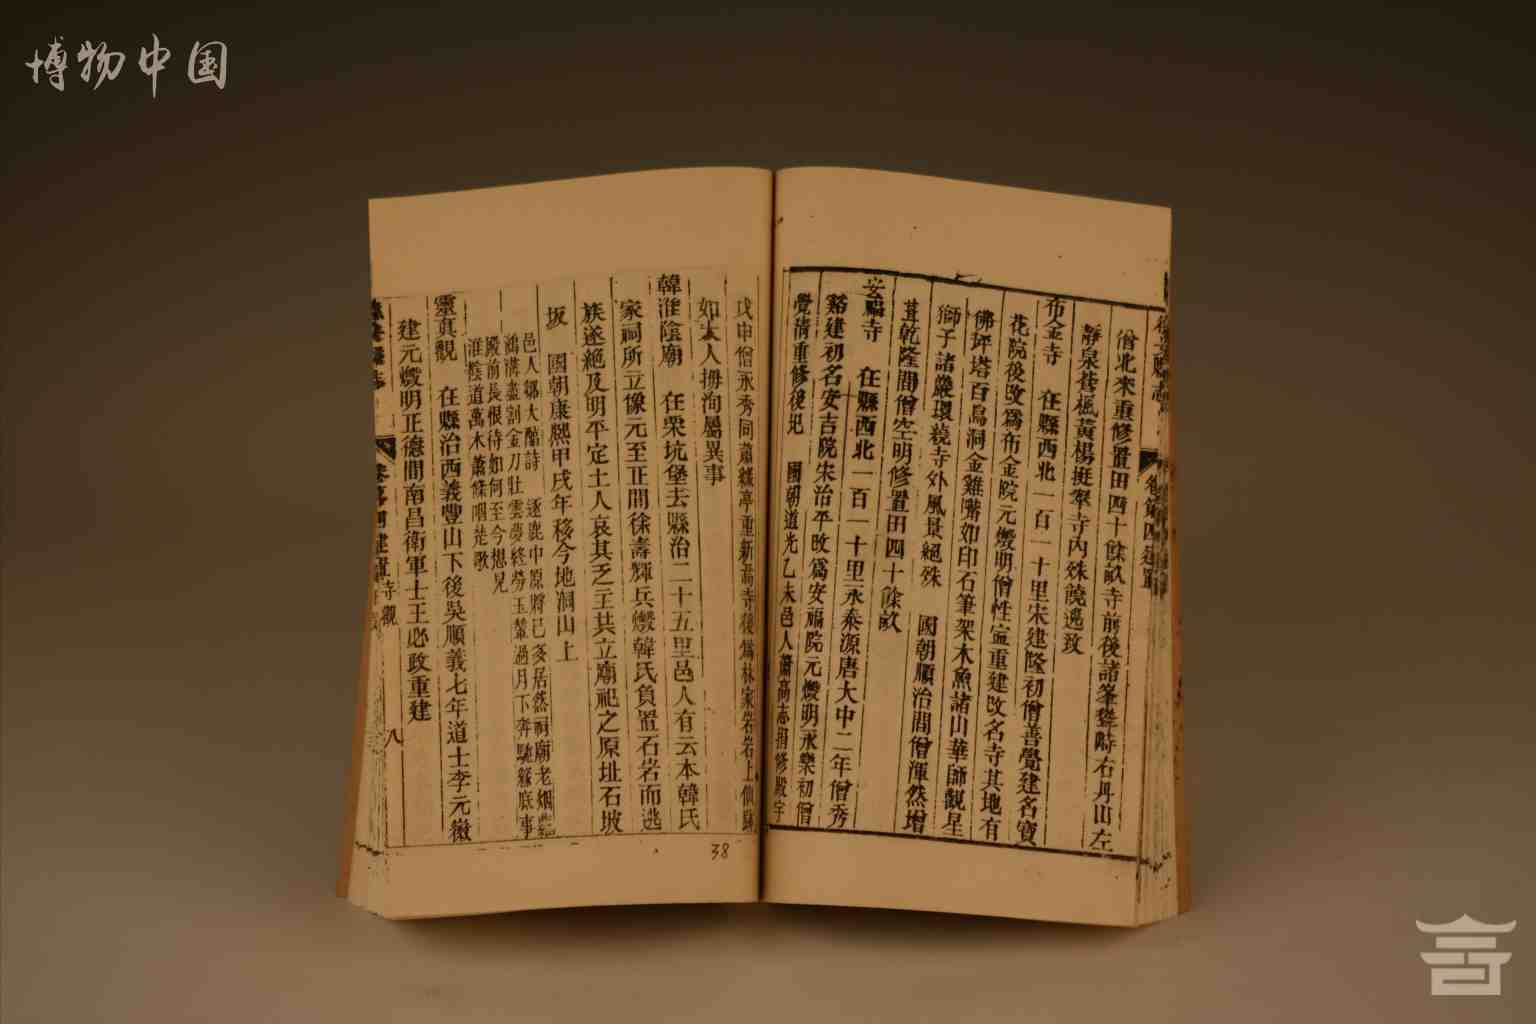 博物中国
僧北來重修置田四十餘畝寺前後諸峯聳峙右丹山左
靜泉巷楓黃楊挺翠寺內殊饒逸致
布金寺 在縣西北一百一十里宋建隆初僧善覺建名寶
花院後改爲布金院元燬明僧性宣重建改名寺其地有
佛坪塔百鳥洞金雞嘴如印石筆架木魚諸山華師觀星
獅子諸巖環繞寺外風景絕殊 國朝順治間僧渾然增
葺乾隆間僧空明修置田四十餘畝
安福寺 在縣西北一百一十里永泰源唐大中二年僧秀
谿建初名安吉院宋治平改爲安福院元燬明永樂初僧
覺清重修後圮 國朝道光乙未邑人蕭高志捐修殿宇
戊申僧永秀同蕭綴亭重新焉寺後爲林家岩岩上仙跡
如太人拇洵屬異事
韓淮陰廟 在衆坑堡去縣治二十五里邑人有云本韓氏
家祠所立像元至正間徐壽輝兵燬韓氏負置石岩而逃
族遂絕及明平定土人哀其乏主共立廟祀之原址石坡
坂 國朝康熙甲戌年移今地洞山上
邑人鄒大酺詩 逐鹿中原將已多居然祠廟老烟蘿
鴻溝盡割金刀壯雲夢終勞玉輦過月下奔馳緣底事
殿前長恨待如何至今想見
淮陰道萬木蕭條唱楚歌
靈真觀 在縣治西義豐山下後吳順義七年道士李元徽
建元燬明正德間南昌衛軍士王必政重建
卷第四建置 寺觀 八
38